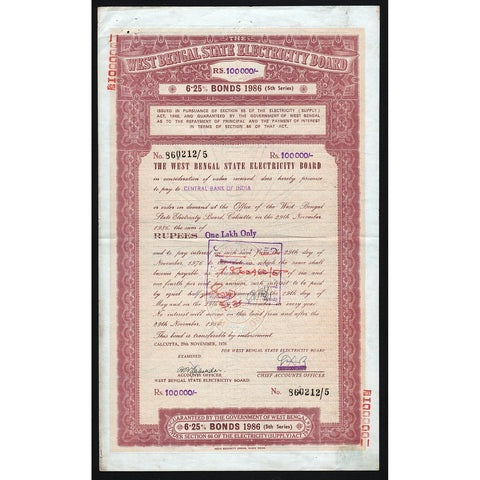 THE
WEST BENGAL STATE ELECTRICITY BOARD
RS. 100000/-
6·25% BONDS 1986 (5th Series)
ISSUED IN PURSUANCE OF SECTION 65 OF THE ELECTRICITY (SUPPLY)
ACT, 1948, AND GUARANTEED BY THE GOVERNMENT OF WEST BENGAL
AS TO THE REPAYMENT OF PRINCIPAL AND THE PAYMENT OF INTEREST
IN TERMS OF SECTION 66 OF THAT ACT.
No. 860212/5 Rs. 100000/-
THE WEST BENGAL STATE ELECTRICITY BOARD
in consideration of value received does hereby promise
to pay to CENTRAL BANK OF INDIA
or order on demand at the Office of the West Bengal
State Electricity Board, Calcutta on the 29th November,
1986, the sum of
RUPEES One Lakh Only
and to pay interest on such sum from the 29th day of
November, 1976
become payable and
fourth per cent per annum, such interest to be paid
by equal half day of
May and on the 29th every year.
No interest will accrue on this bond from and after the
29th November, 1986.
This bond is transferable by endorsement.
CALCUTTA, 29th NOVEMBER, 1976
FOR WEST BENGAL STATE ELECTRICITY BOARD
EXAMINED
ACCOUNTS OFFICER
WEST BENGAL STATE ELECTRICITY BOARD.
CHIEF ACCOUNTS OFFICER.
Rs. 100000/- No. 860212/5
GUARANTEED BY THE GOVERNMENT OF WEST BENGAL
6·25% BONDS 1986 (5th Series)
PER SECTION 66 OF THE ELECTRICITY (SUPPLY) ACT